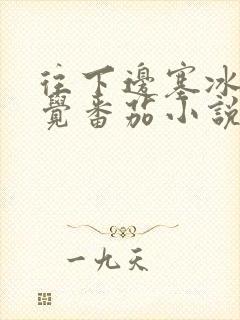 往下邊塞冰
覺番茄小說
一九天